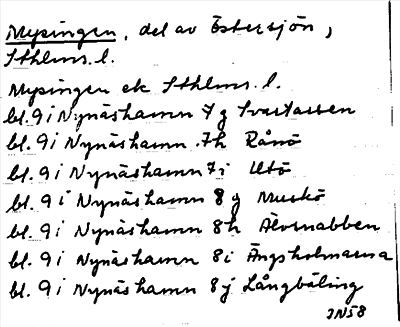 Mysingen, del av Östersjön,
Sthlms. l.
Mysingen ek Sthlms. l.
bl. 9 i Nynäshamn 7 g Svartassen
bl. 9 i Nynäshamn 7h Rånö
bl. 9 i Nynäshamn 7 i Utö
bl. 9 i Nynäshamn 8 g Muskö
bl. 9 i Nynäshamn 8h Älvsnabben
bl. 9 i Nynäshamn 8 i Ängsholmarna
bl. 9 i Nynäshamn 8 j Långbäling
JN58